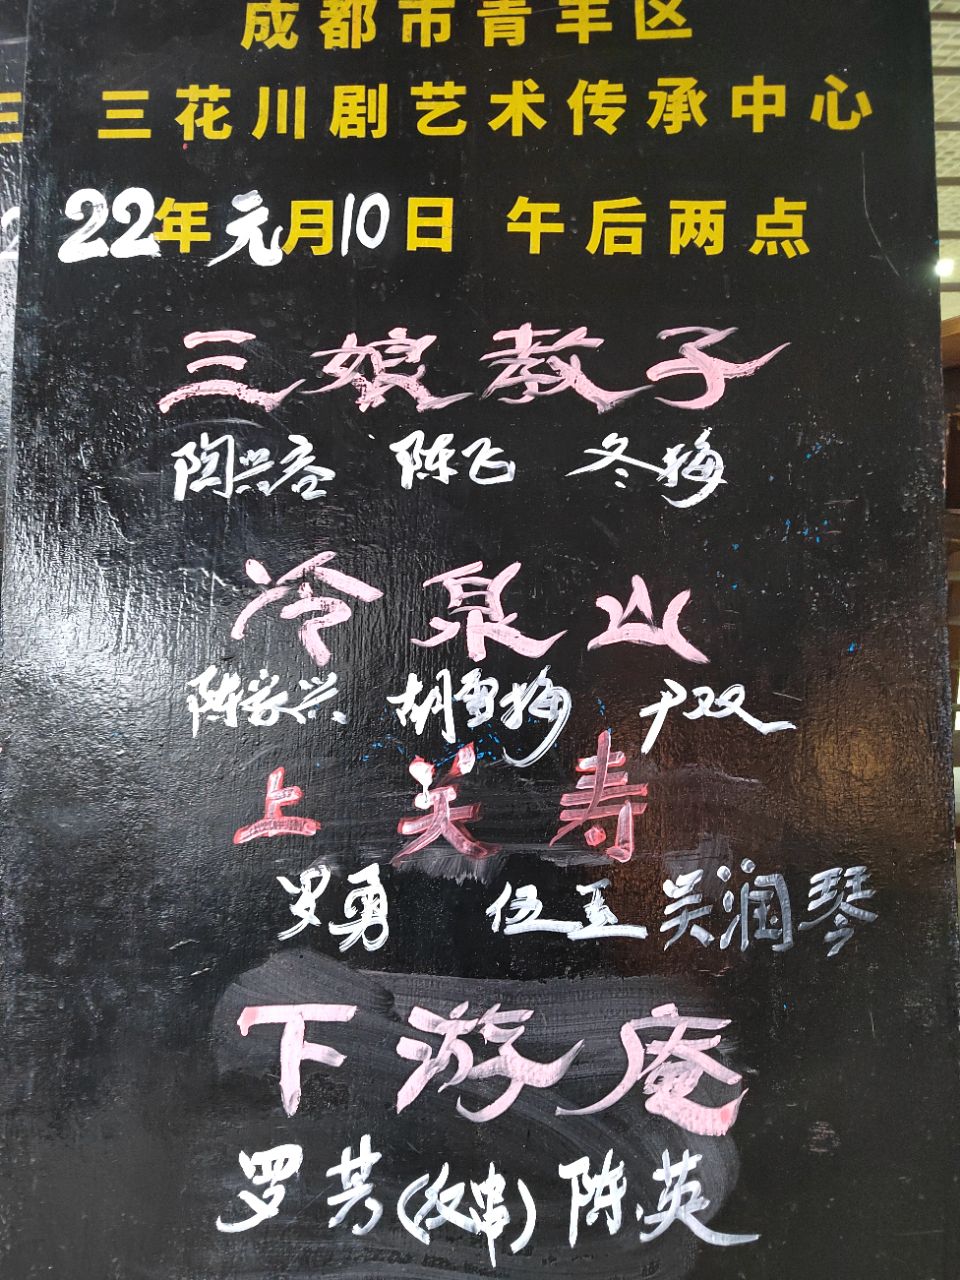 成都市青羊区
三花川剧艺术传承中心
22年元月10日 午后两点
三娘教子
陶兴容 陈飞 冬梅
冷泉山
陈家兴 胡雪梅 尹双
上关寿
罗勇 伍玉 吴润琴
下游庵
罗芳(反串)陈英